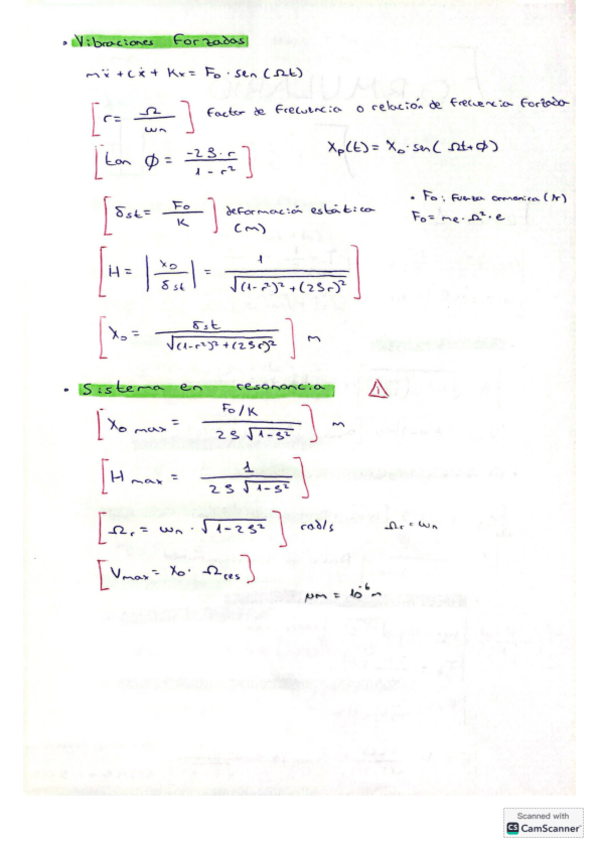 • Vibraciones Forzadas
mẍ + cẋ + Kx = F₀ · sen (Ωt)
[r = Ω / ωn] Factor de Frecuencia o relación de frecuencia forzada
[tan ϕ = -2ζ·r / 1 - r²] Xp(t) = X₀ · sen( Ωt + ϕ)
• F₀: Fuerza armonica (N)
[δst = F₀ / K] deformación estática (m) F₀ = me · Ω² · e
[H = |X₀ / δst| = 1 / √(1-r²)² + (2ζr)²]
[X₀ = δst / √(1-r²)² + (2ζr)²] m
• Sistema en resonancia ⚠
[X₀ max = F₀/K / 2ζ √1-ζ²] m
[H max = 1 / 2ζ √1-ζ²]
[Ωr = ωn · √1-2ζ²] rad/s Ωr = ωn
[Vmax = X₀ · Ωres]
μm = 10⁻⁶ m
Scanned with
CS CamScanner